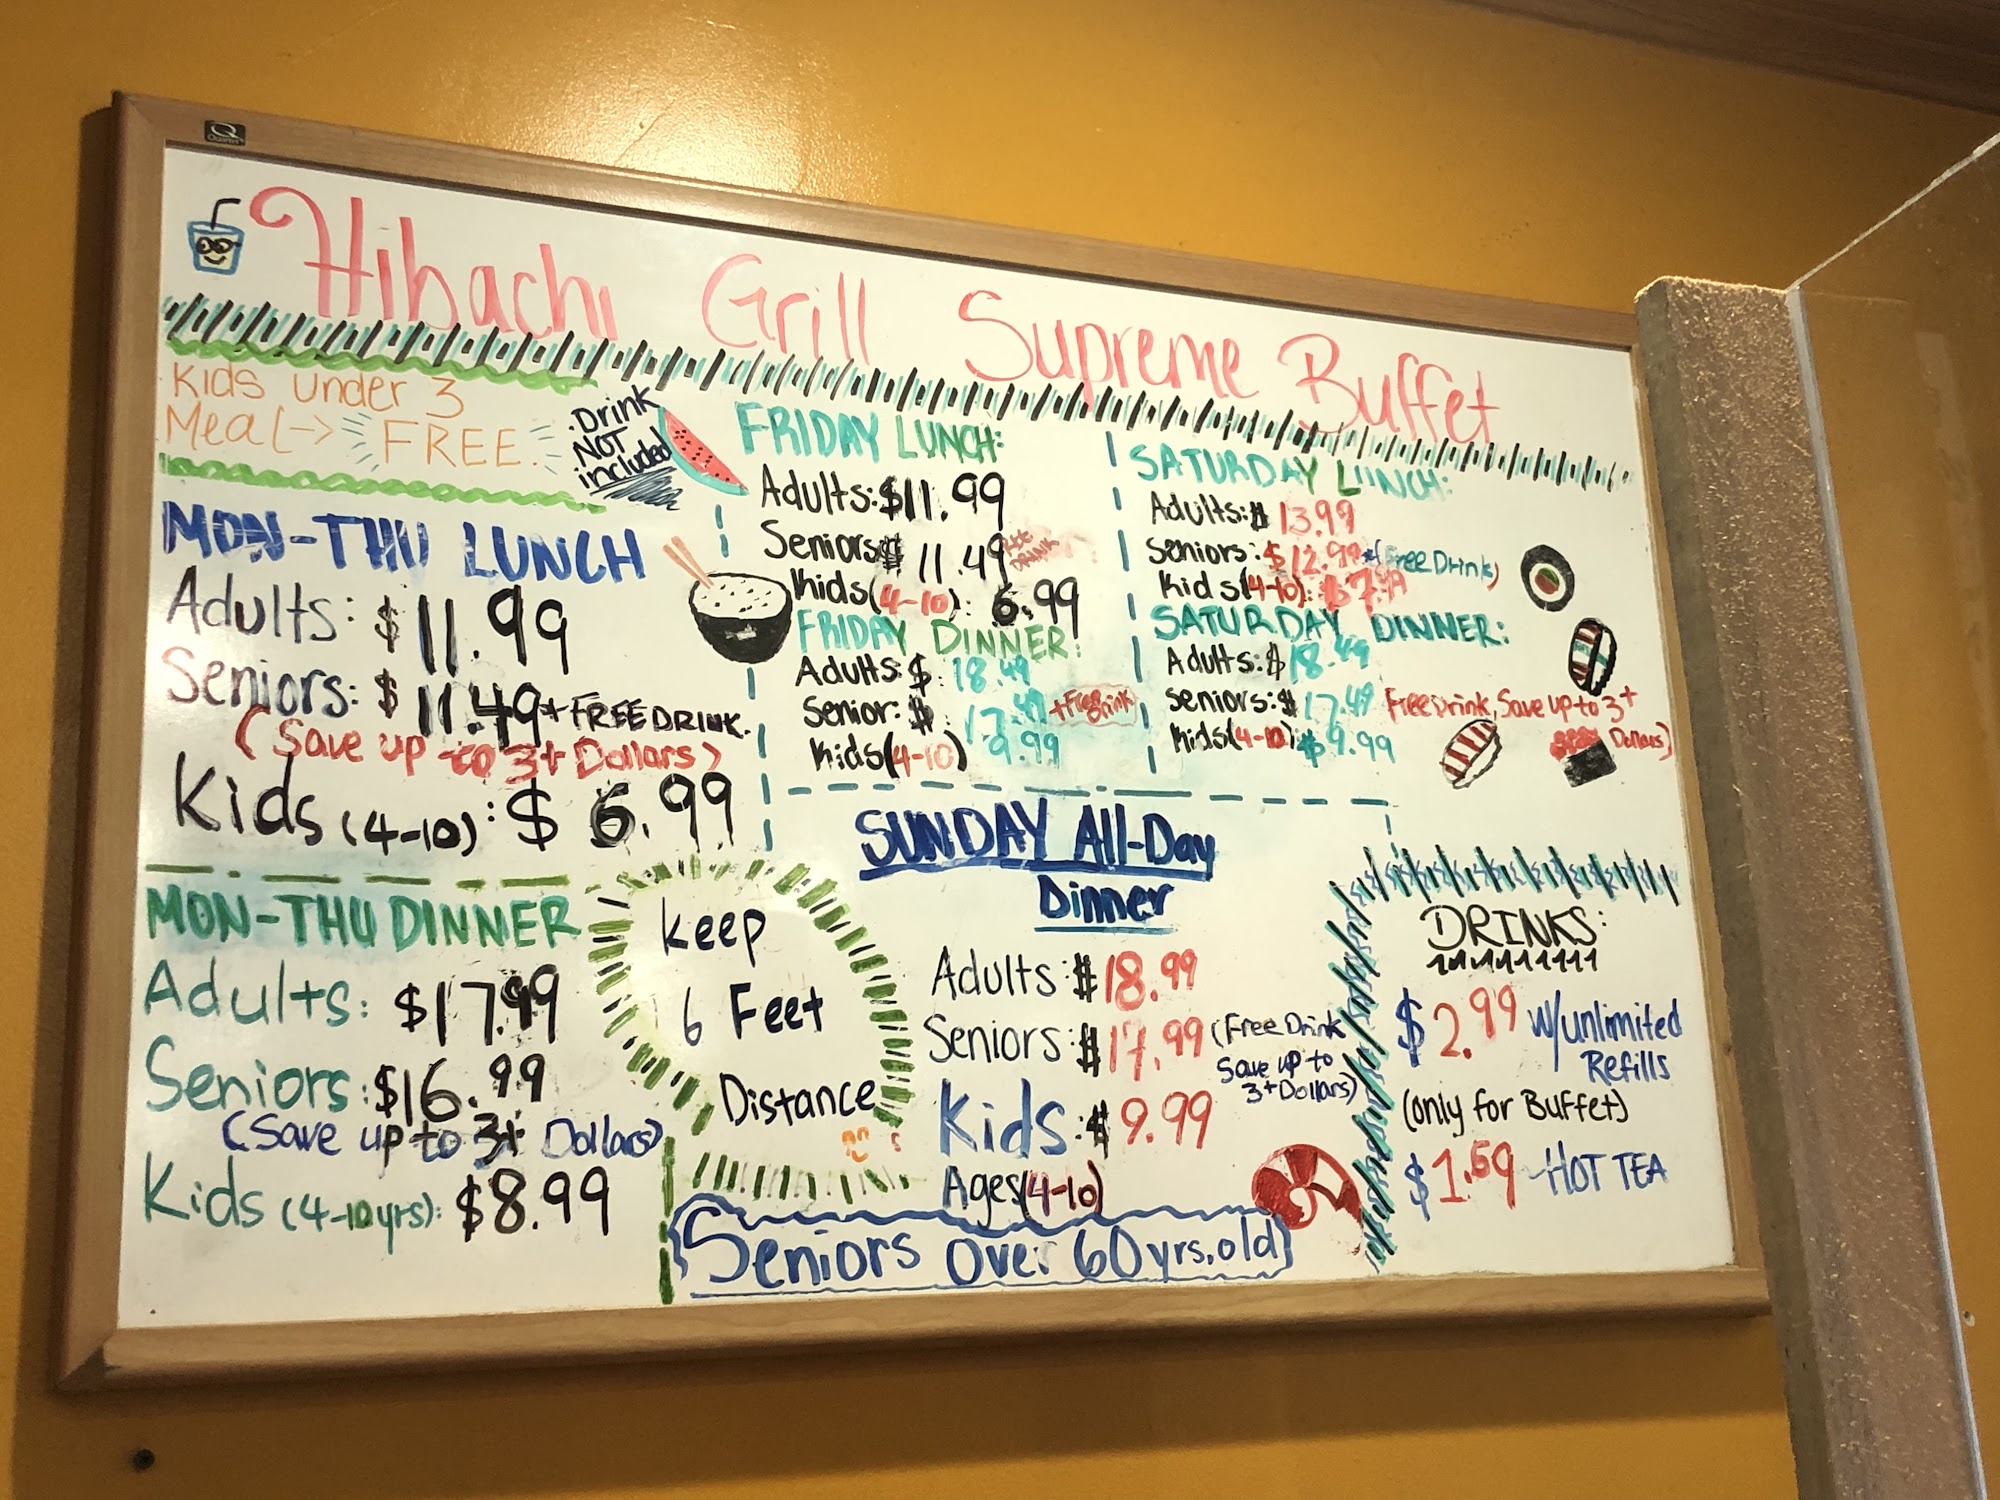 Quartet
Hibachi Grill Supreme Buffet
Kids under 3
Meal -> FREE
Drink
NOT
included
MON-THU LUNCH
Adults: $11.99
Seniors: $11.49 + FREE DRINK.
(Save up to 3+ Dollars)
Kids (4-10): $6.99
MON-THU DINNER
Adults: $17.99
Seniors: $16.99
(Save up to 3+ Dollars)
Kids (4-10yrs): $8.99
FRIDAY LUNCH:
Adults: $11.99
Seniors $11.49
DRINK
Kids (4-10): 6.99
FRIDAY DINNER:
Adults: $18.49
Senior: $17.49 + Free Drink
Kids (4-10) 9.99
SATURDAY LUNCH:
Adults: $13.99
Seniors: $12.99 *(Free Drink)
Kids (4-10): $7.99
SATURDAY DINNER:
Adults: $18.49
Seniors: $17.49 Free Drink, Save up to 3+
Dollars)
Kids (4-10) $9.99
Keep
6 Feet
Distance
SUNDAY All-Day
Dinner
Adults: $18.99
Seniors: $17.99 (Free Drink
Save up to
3+ Dollars)
Kids: $9.99
Ages (4-10)
Seniors over 60 yrs. old
DRINKS:
$2.99 w/unlimited
Refills
(only for Buffet)
$1.69 - HOT TEA